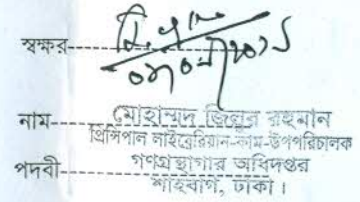 স্বক্ষর
নাম---- মোহাম্মদ জিল্লুর রহমান
প্রিন্সিপাল লাইব্রেরিয়ান-কাম-উপপরিচালক
পদবী---- গণগ্রন্থাগার অধিদপ্তর
শাহবাগ, ঢাকা।